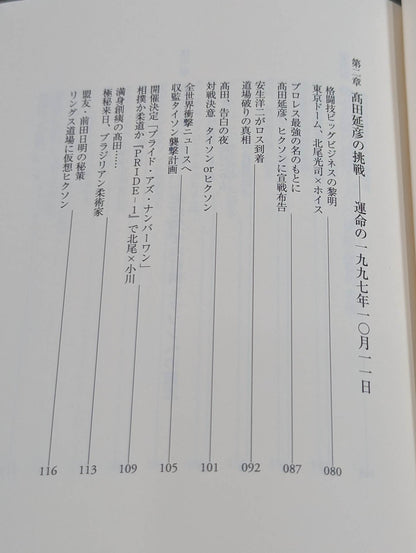 第二章 髙田延彦の挑戦――運命の一九九七年一〇月一一日
格闘技ビッグビジネスの黎明
東京ドーム、北尾光司×ホイス 080
プロレス最強の名のもとに
髙田延彦、ヒクソンに宣戦布告 087
安生洋二がロス到着
道場破りの真相 092
髙田、告白の夜
対戦決意 タイソンorヒクソン 101
全世界衝撃ニュースへ
収監タイソン襲撃計画 105
開催決定「プライド・アズ・ナンバーワン」
相撲か柔道か、『PRIDE-1』で北尾×小川 109
満身創痍の髙田……
極秘来日、ブラジリアン柔術家 113
盟友・前田日明の秘策
リングス道場に仮想ヒクソン 116